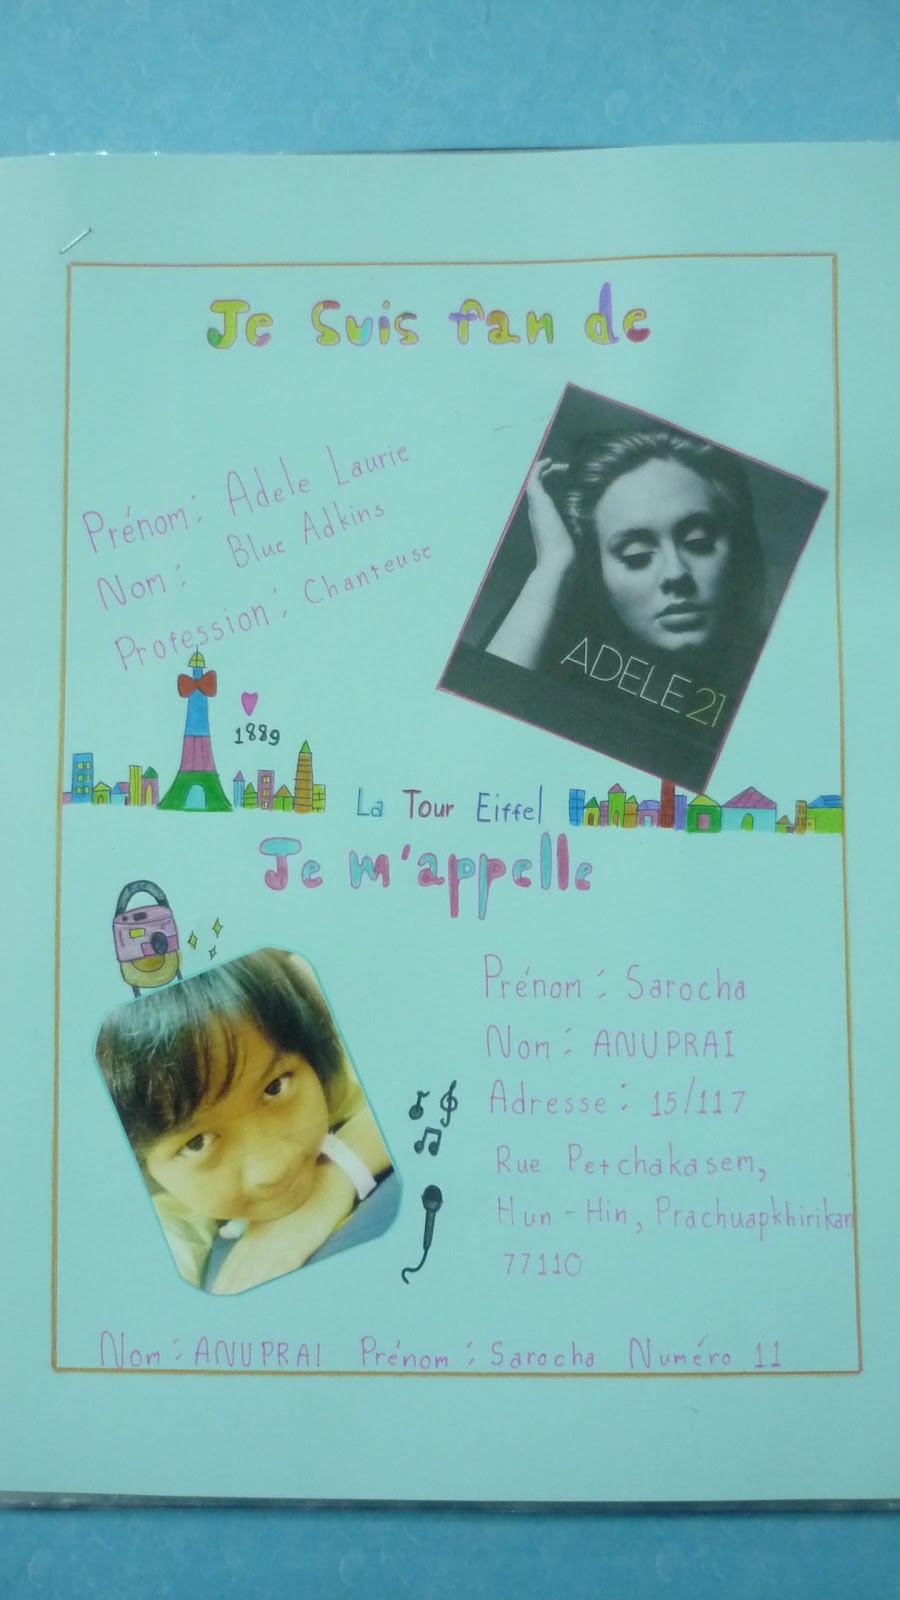 Je Suis fan de
Prénom : Adele Laurie
Nom : Blue Adkins
Profession : Chanteuse
ADELE 21
1889
La Tour Eiffel
Je m'appelle
Prénom : Sarocha
Nom : ANUPRAI
Adresse : 15/117
Rue Petchakasem,
Hun-Hin, Prachuapkhirikan
77110
Nom : ANUPRAI Prénom : Sarocha Numéro 11